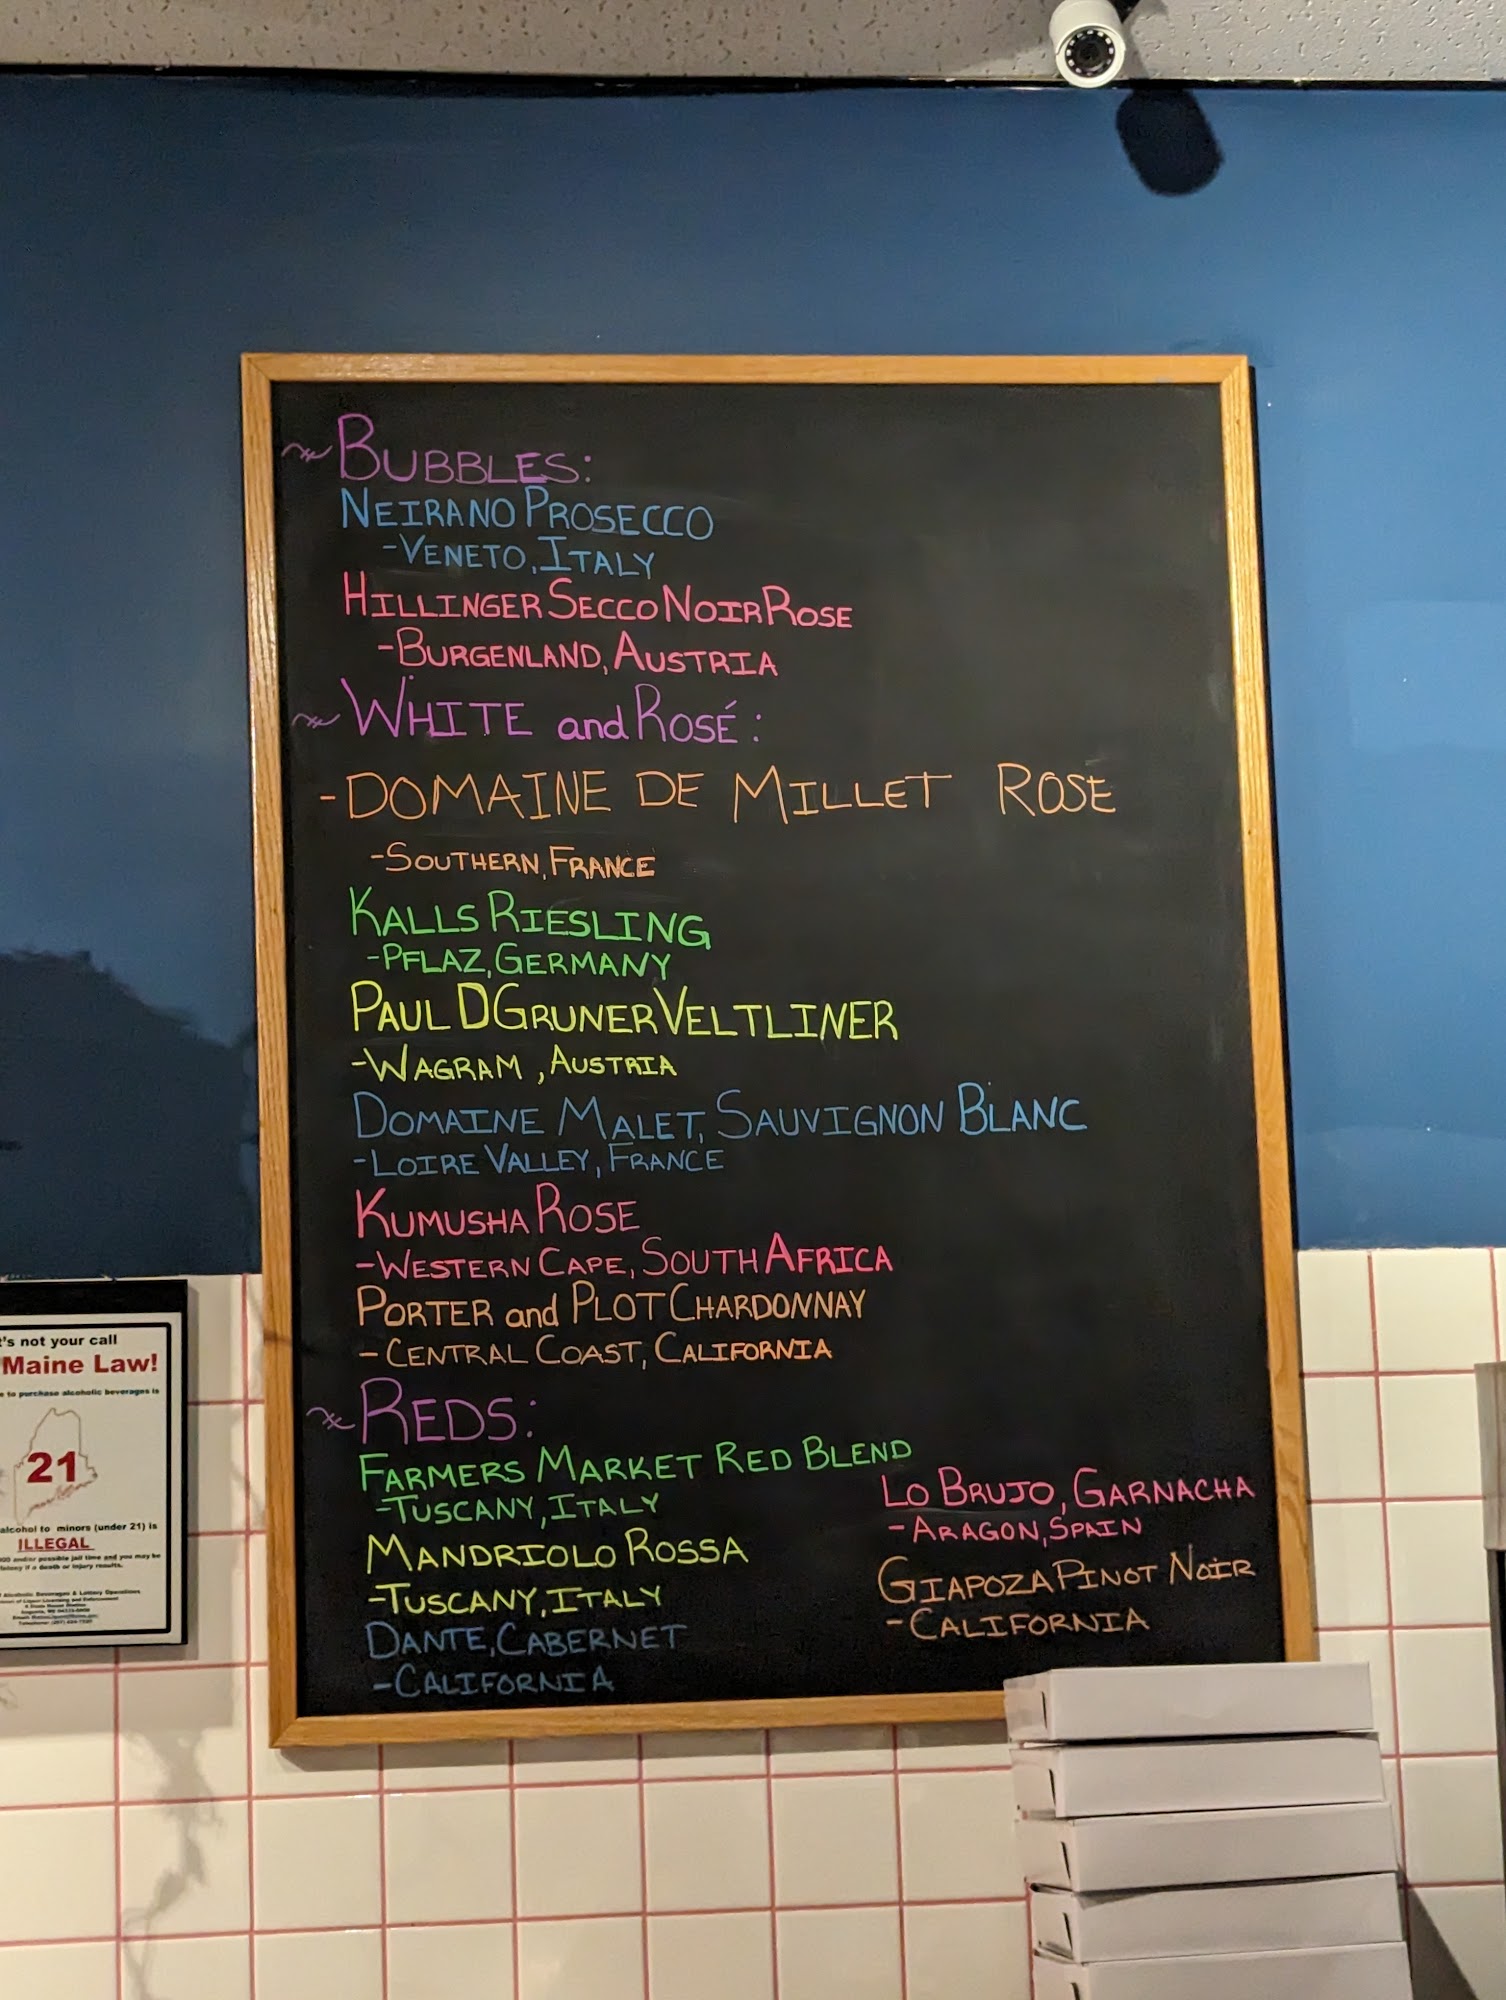 Bubbles:
Neirano Prosecco
-Veneto, Italy
Hillinger Secco Noir Rose
-Burgenland, Austria
White and Rosé:
-Domaine de Millet Rose
-Southern, France
Kalls Riesling
-Pflaz, Germany
Paul D Gruner Veltliner
-Wagram, Austria
Domaine Malet, Sauvignon Blanc
-Loire Valley, France
Kumusha Rose
-Western Cape, South Africa
Porter and Plot Chardonnay
-Central Coast, California
Reds:
Farmers Market Red Blend
-Tuscany, Italy
Mandriolo Rossa
-Tuscany, Italy
Dante, Cabernet
-California
Lo Brujo, Garnacha
-Aragon, Spain
Giapoza Pinot Noir
-California
's not your call
Maine Law!
to purchase alcoholic beverages is
21
alcohol to minors (under 21) is
ILLEGAL
and/or possible jail time and you may be
if a death or injury results.